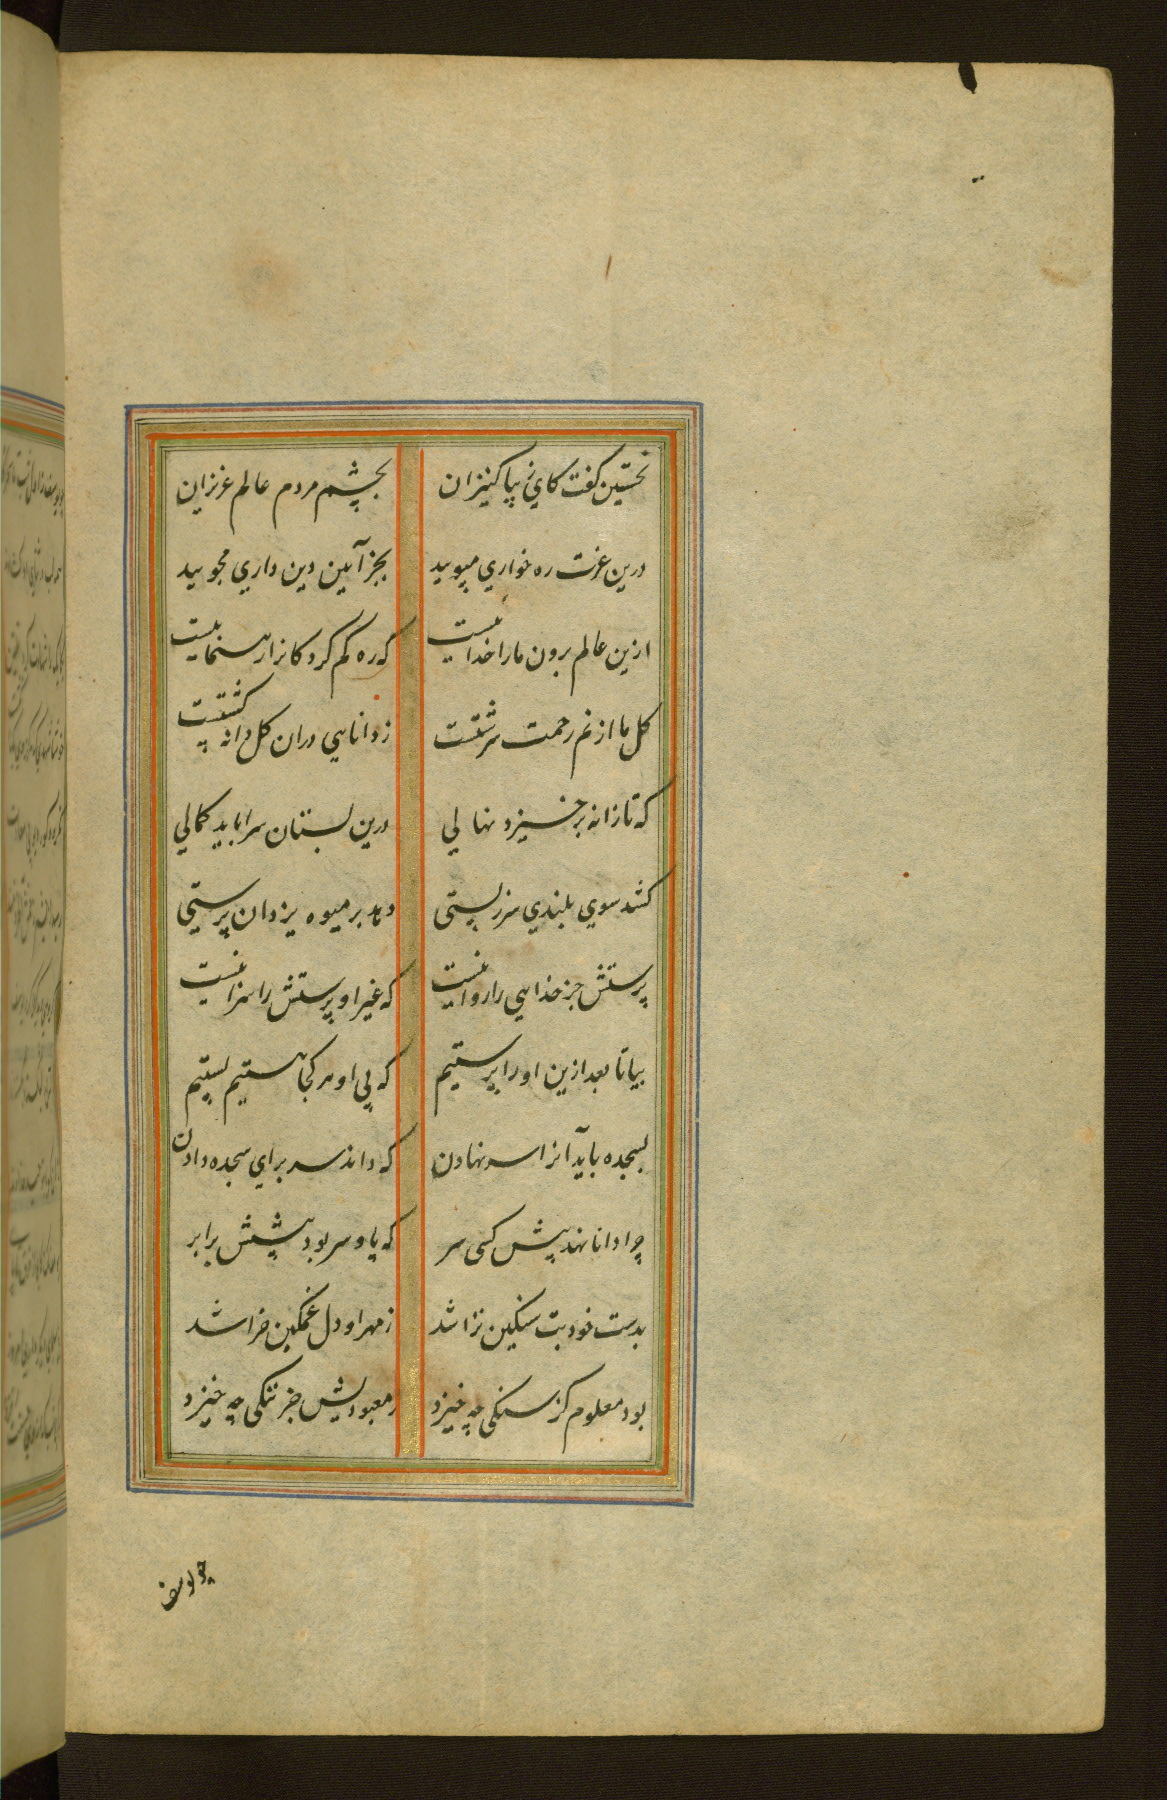 نخستین کفت کای زیبا کنیزان بچشم مردم عالم عزیزان
درین عزت ره خواری مپویید بجز آیین دین داری مجویید
ازین عالم برون ما را خداییست که ره کم کردکانرا رهنماییست
کل ما از نم رحمت سرشتست ز دانایی دران کل دانه کشتست
که تا زانه برخیزد نهالی درین بستان سرا یابد کمالی
کشد سوی بلندی سر ز پستی دهد بر میوه یزدان پرستی
پرستش جز خدایی را روا نیست که غیر او پرستش را سزا نیست
بیا تا بعد ازین او را پرستیم که بی او هر کجا هستیم پستیم
بسجده باید آنرا سر نهادن که داند سر برای سجده دادن
چرا دانا نهد پیش کسی سر که پا و سر بود پیشش برابر
بدست خود بت سنکین تراشد ز مهر او دل غمکین خراشد
بود معلوم کز سنکی چه خیزد ز معبودیش جز ننکی چه خیزد
چو یوسف